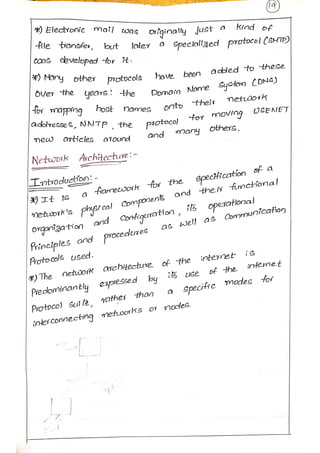 19
*) Electronic mail was originally just a kind of
file transfer, but later a specialized protocol (SMTP)
was developed for it.
*) Many other protocols have been added to these
over the years: the Domain Name System (DNS)
for mapping host names onto their network
addresses, NNTP, the protocol for moving USENET
new articles around and many others.
Network Architecture:-
Introduction:-
*) It is a framework for the specification of a
network's physical components and their functional
organization and configuration, its operational
Principles and procedures as well as communication
Protocols used.
*) The network architecture of the internet is
Predominantly expressed by its use of the internet
Protocol suite, rather than a specific modes for
interconnecting networks or nodes.